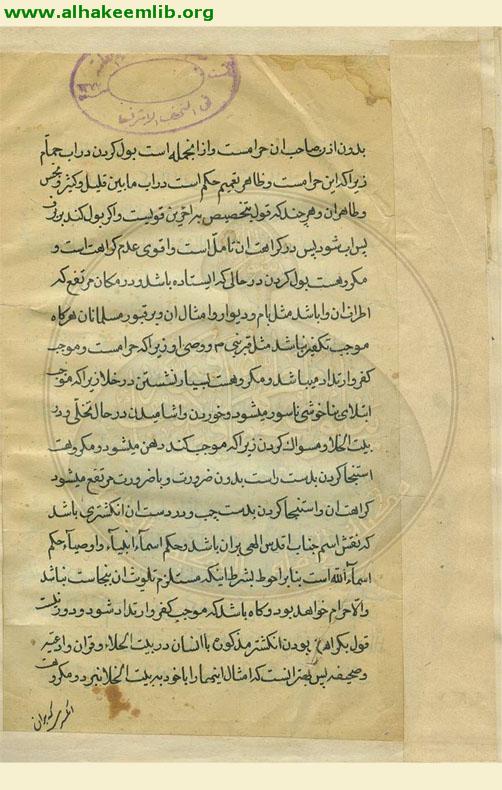 www.alhakeemlib.org
في النجف الاشرف
بدون اذن صاحب ان حرامست و از انجمله است بول کردن در اب حمام
زیرا که این حرامست و ظاهر تعمیم حکم است در اب مابین قلیل و کثیر و نجس
و طاهر ان و هر چند که قول بتخصیص به اخرین قویست و اگر بول کند برف
پس اب شود پس در کراهت ان تأمل است و اقوی عدم کراهت است و
مکروهست بول کردن در حالی که ایستاده باشد و در مکان مرتفع که
اطراف ان وا باشد مثل بام و دیوار و امثال ان و بر قبور مسلمانان هر کاه
موجب تکفیر نباشد مثل قبر نبی م و وصی او زیرا که حرامست و موجب
کفر و ارتداد میباشد و مکروهست بسیار نشستن در خلا زیرا که موجب
ابتلای بناخوشی ناسور میشود و خوردن و اشامیدن در حال تخلی و در
بیت الخلا و مسواک کردن زیرا که موجب کند دهن میشود و مکروهست
استنجا کردن بدست راست بدون ضرورت و با ضرورت مرتفع میشود
کراهت ان و استنجا کردن بدست چپ و در دست ان انکشتری باشد
که نقش اسم جناب اقدس الهی بران باشد و حکم اسمآء انبیآء و اوصیآء حکم
اسمآء الله است بنا بر احوط بشرط اینکه مستلزم تلویث ان بنجاست نباشد
والا حرام خواهد بود و کاه باشد که موجب کفر و ارتداد شود و دور نیست
قول بکراهة بودن انکشتر مذکوره با انسان در بیت الخلاء و قران و ادعیه
و صحیفه پس بهتر انست که امثال اینها را با خود به بیت الخلا نبرد و مکروهست